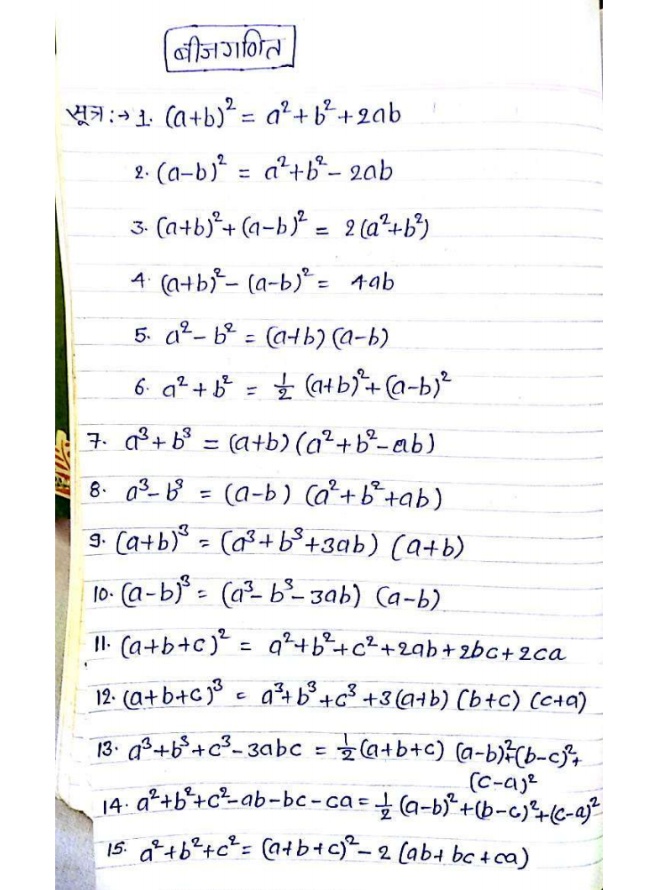 बीजगणित
सूत्र :→ 1. (a+b)² = a²+b²+2ab
2. (a-b)² = a²+b²-2ab
3. (a+b)²+(a-b)² = 2(a²+b²)
4. (a+b)²-(a-b)² = 4ab
5. a²-b² = (a+b)(a-b)
6. a²+b² = ½ (a+b)²+(a-b)²
7. a³+b³ = (a+b)(a²+b²-ab)
8. a³-b³ = (a-b) (a²+b²+ab)
9. (a+b)³ = (a³+b³+3ab) (a+b)
10. (a-b)³ = (a³-b³-3ab) (a-b)
11. (a+b+c)² = a²+b²+c²+2ab+2bc+2ca
12. (a+b+c)³ = a³+b³+c³+3(a+b) (b+c) (c+a)
13. a³+b³+c³-3abc = ½(a+b+c) (a-b)²+(b-c)²+
(c-a)²
14. a²+b²+c²-ab-bc-ca = ½ (a-b)²+(b-c)²+(c-a)²
15. a²+b²+c² = (a+b+c)²-2 (ab+bc+ca)